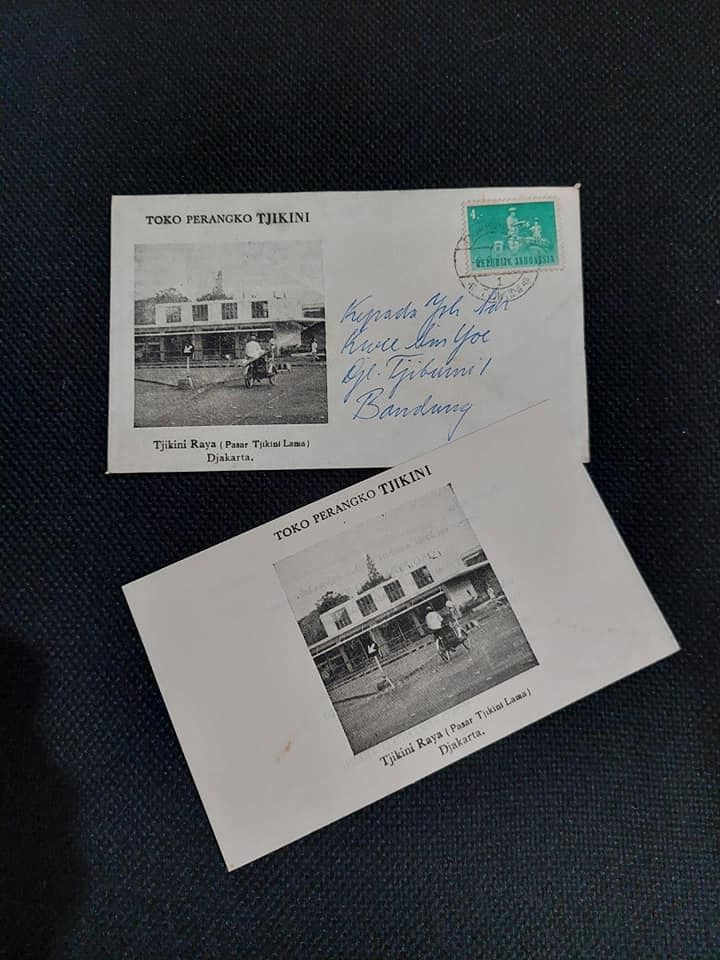 TOKO PERANGKO TJIKINI
4.-
REPUBLIK INDONESIA
Kepada Yth Sdr
Kwee Lim Yoe
Djl. Tjibuni 1
Bandung
Tjikini Raya (Pasar Tjikini Lama)
Djakarta.
TOKO PERANGKO TJIKINI
Tjikini Raya (Pasar Tjikini Lama)
Djakarta.